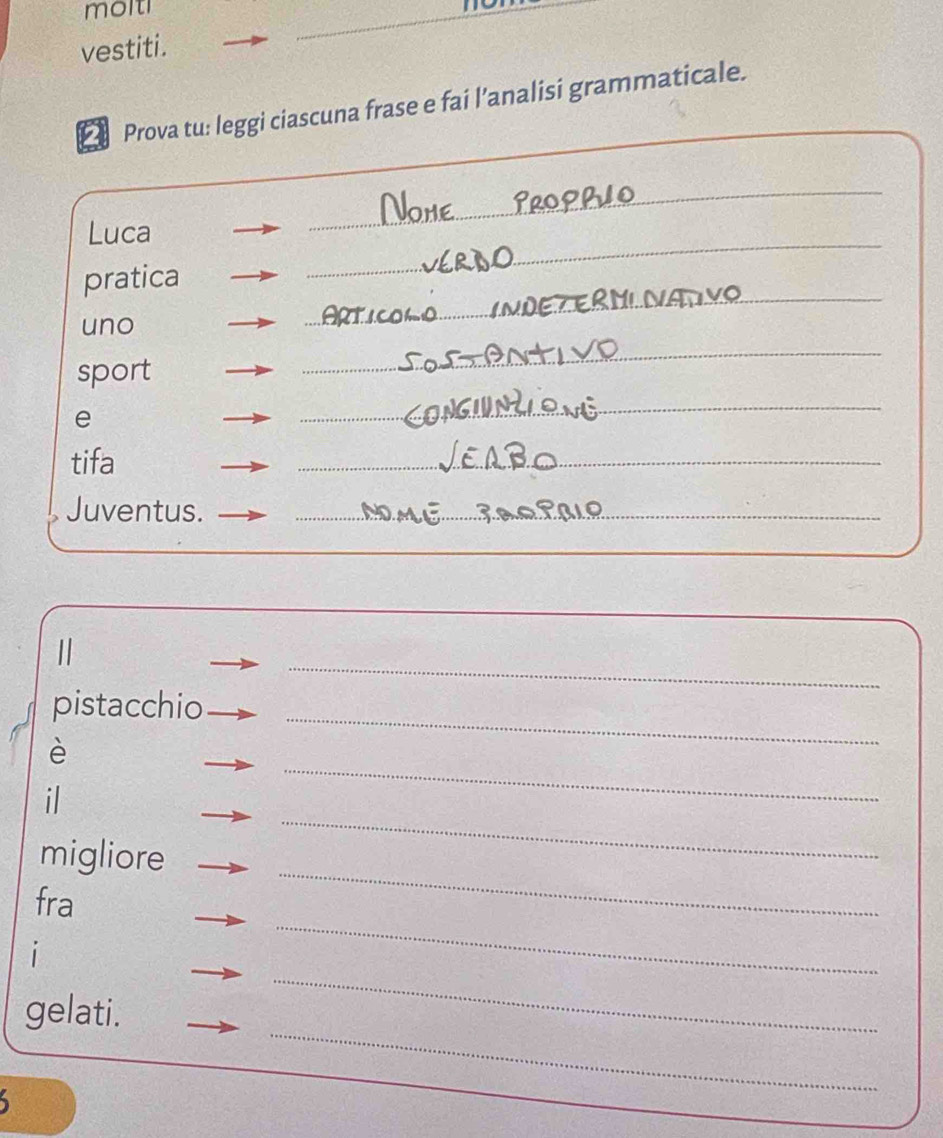 molti
vestiti.
2 Prova tu: leggi ciascuna frase e fai l'analisi grammaticale.
Luca NOME PROPRIO
pratica VERBO
uno ARTICOLO INDETERMINATIVO
sport SOSTANTIVO
e CONGIUNZIONE
tifa VERBO
Juventus. NOME PROPRIO
Il
pistacchio
è
il
migliore
fra
i
gelati.